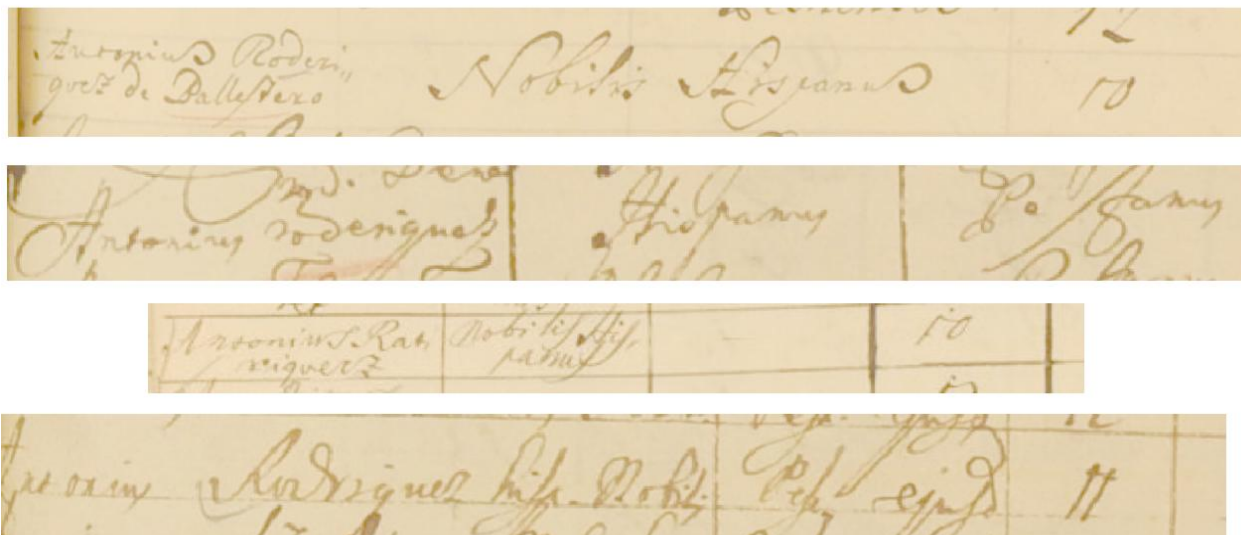 Antonius Roderi„
quez de Ballestero Nobilis Hispanus 10
Antonius Roderiquez Hispanus
Antonius Rat,
riquerz Nobilis His,
panus 10
Antonius Rodriquez hisp. Nobil: ejusd 11